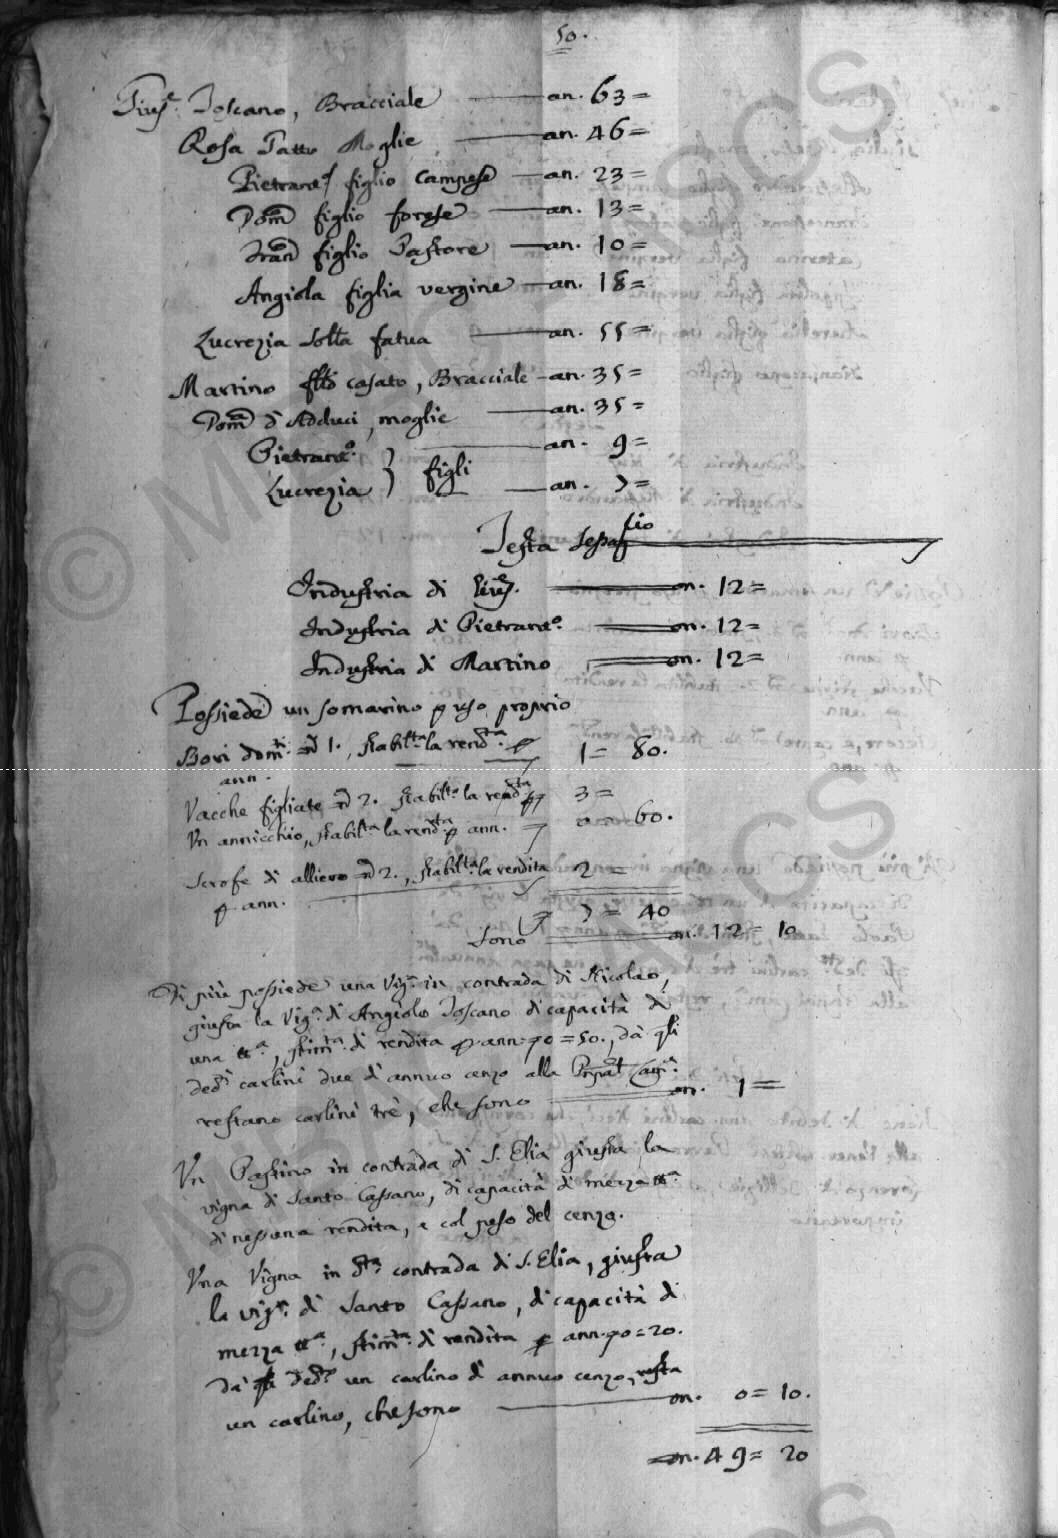 50.
Gius.e Toscano, Bracciale an. 63=
Rosa Tatto Moglie an. 46=
Pietrant.o figlio Campese an. 23=
Dom.co figlio forese an. 13=
Fran.co figlio Pastore an. 10=
Angiola figlia vergine an. 18=
Lucrezia Sol.la fatua an. 55=
Martino casato, Bracciale an. 35=
Dom.a d'Adduci, moglie an. 35=
Pietrant.o } an. 9=
Lucrezia } figli an. 7=
Testa
Industria di Gius.e on. 12=
Industria di Pietrant.o on. 12=
Industria di Martino on. 12=
Possiede un somarino p uso proprio
Bovi dom.ti n.o 1., stabil.ta la rend.ta p 1= 80.
ann.
Vacche figliate n.o 2. stabil.ta la rend.ta p 3=
Un annicchio, stabil.ta la rend.ta p ann. 60.
Scrofe di allievo n.o 2., stabil.ta la rendita 2=
p ann.
7= 40
Sono on. 12= 10
Di più possiede una Vig.a in contrada di Nicolao,
giusta la Vig.a di Angiolo Toscano di capacità di
una tt.a, stim.ta di rendita p ann. 0=50., dà q.li
ded.ti carlini due d'annuo cenzo alla Cam.a
restano carlini trè, che sono on. 1=
Un Pastino in contrada di S. Elia giusta la
vigna di Santo Cassano, di capacità di mezza tt.a
di nessuna rendita, e col peso del cenzo.
Una Vigna in d.ta contrada di S. Elia, giusta
la vig.a di Santo Cassano, di capacità di
mezza tt.a, stim.ta di rendita p ann. 0=20.
da q.li ded.ti un carlino d'annuo cenzo, resta
un carlino, che sono on. 0= 10.
on. 49= 20
© MIBAC ASCS
© MIBAC ASCS